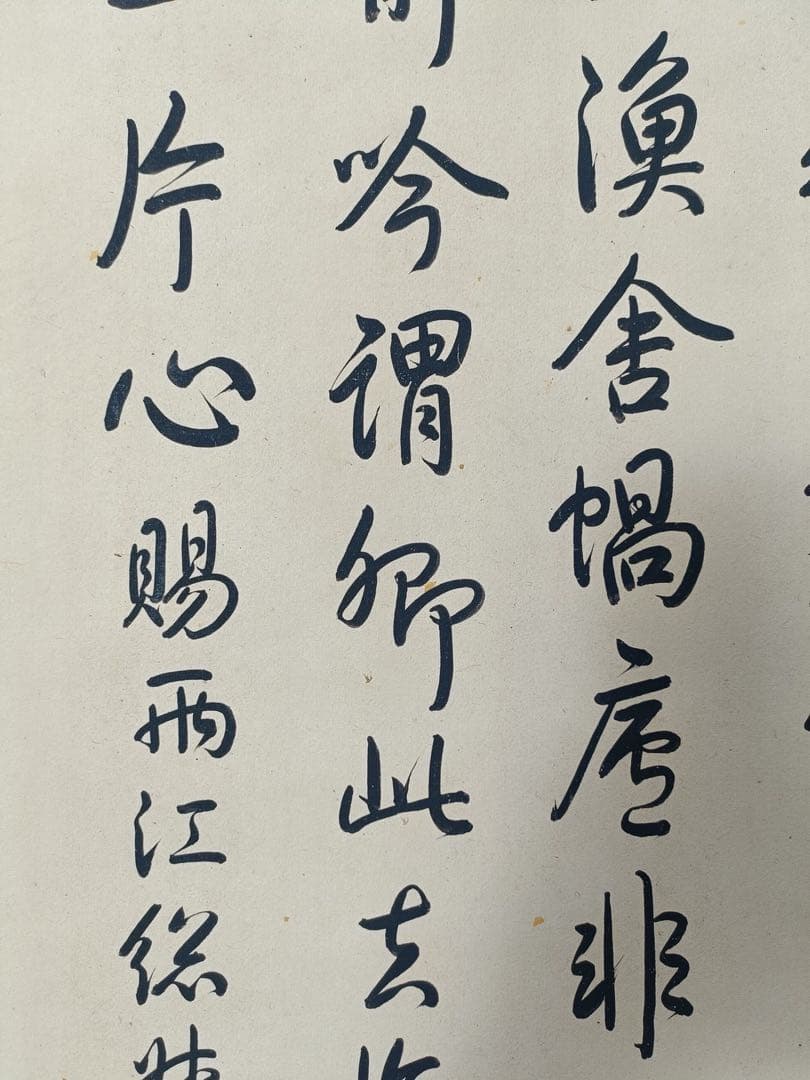 漁舍蝸廬非
吟謂卿此去
片心賜兩江總